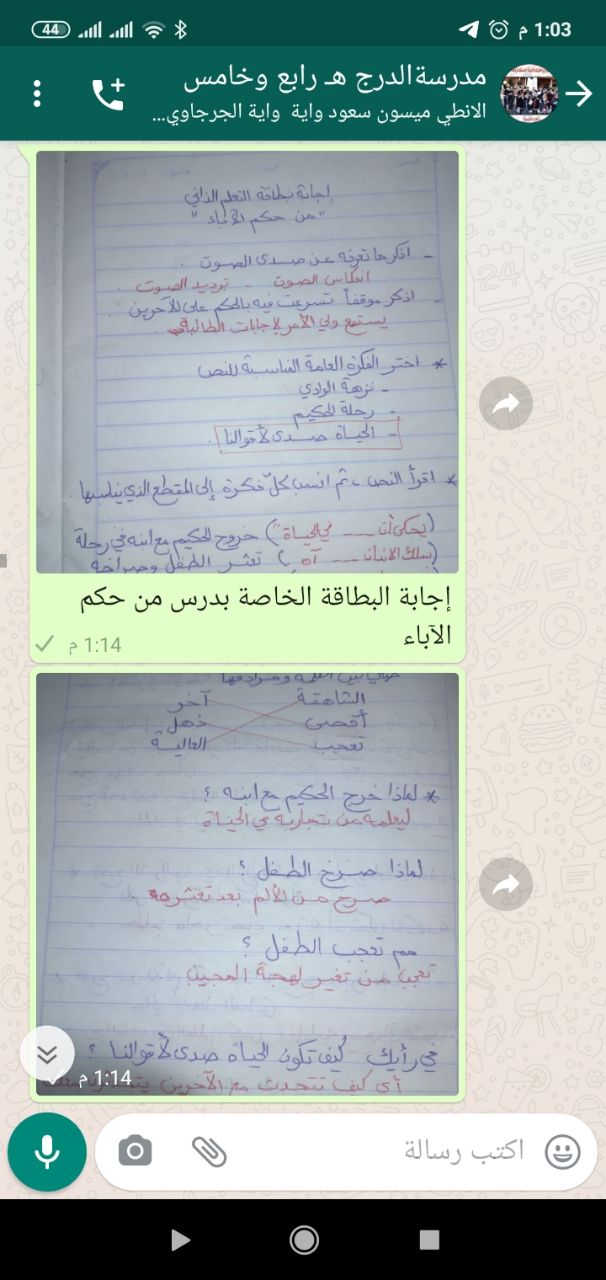 44
1:03 م
مدرسةالدرج هـ رابع وخامس
الانطي ميسون سعود واية  واية الجرجاوي...
إجابة بطاقة التعلم الذاتي
"من حكم الآباء"
- اذكر ما تعرفه عن صدى الصوت .
انعكاس الصوت - ترديد الصوت .
- اذكر موقفاً تسرعت فيه بالحكم على الآخرين .
يستمع ولي الأمر لإجابات الطالب
* اختر الفكرة العامة المناسبة للنص
- نزهة الوادي
- رحلة الحكيم
- الحياة صدى لأقوالنا .
* اقرأ النص ، ثم انسب كل فكرة إلى المقطع الذي يناسبها .
(يحكى أن --- في الحياة") خروج الحكيم مع ابنه في رحلة
(سلك الابنان --- آه ) تعثر الطفل وصراخه
إجابة البطاقة الخاصة بدرس من حكم
الآباء
1:14 م
الشاهقة آخر
أقصى ذهل
تعجب العالية
* لماذا خرج الحكيم مع ابنه ؟
ليعلمه من تجاربه في الحياة
لماذا صرخ الطفل ؟
صرخ من الألم بعد تعثره
مم تعجب الطفل ؟
تعجب من تغير لهجة المجيب
في رأيك كيف تكون الحياة صدى لأقوالنا ؟
أي كيف تتحدث مع الآخرين
1:14 م
اكتب رسالة